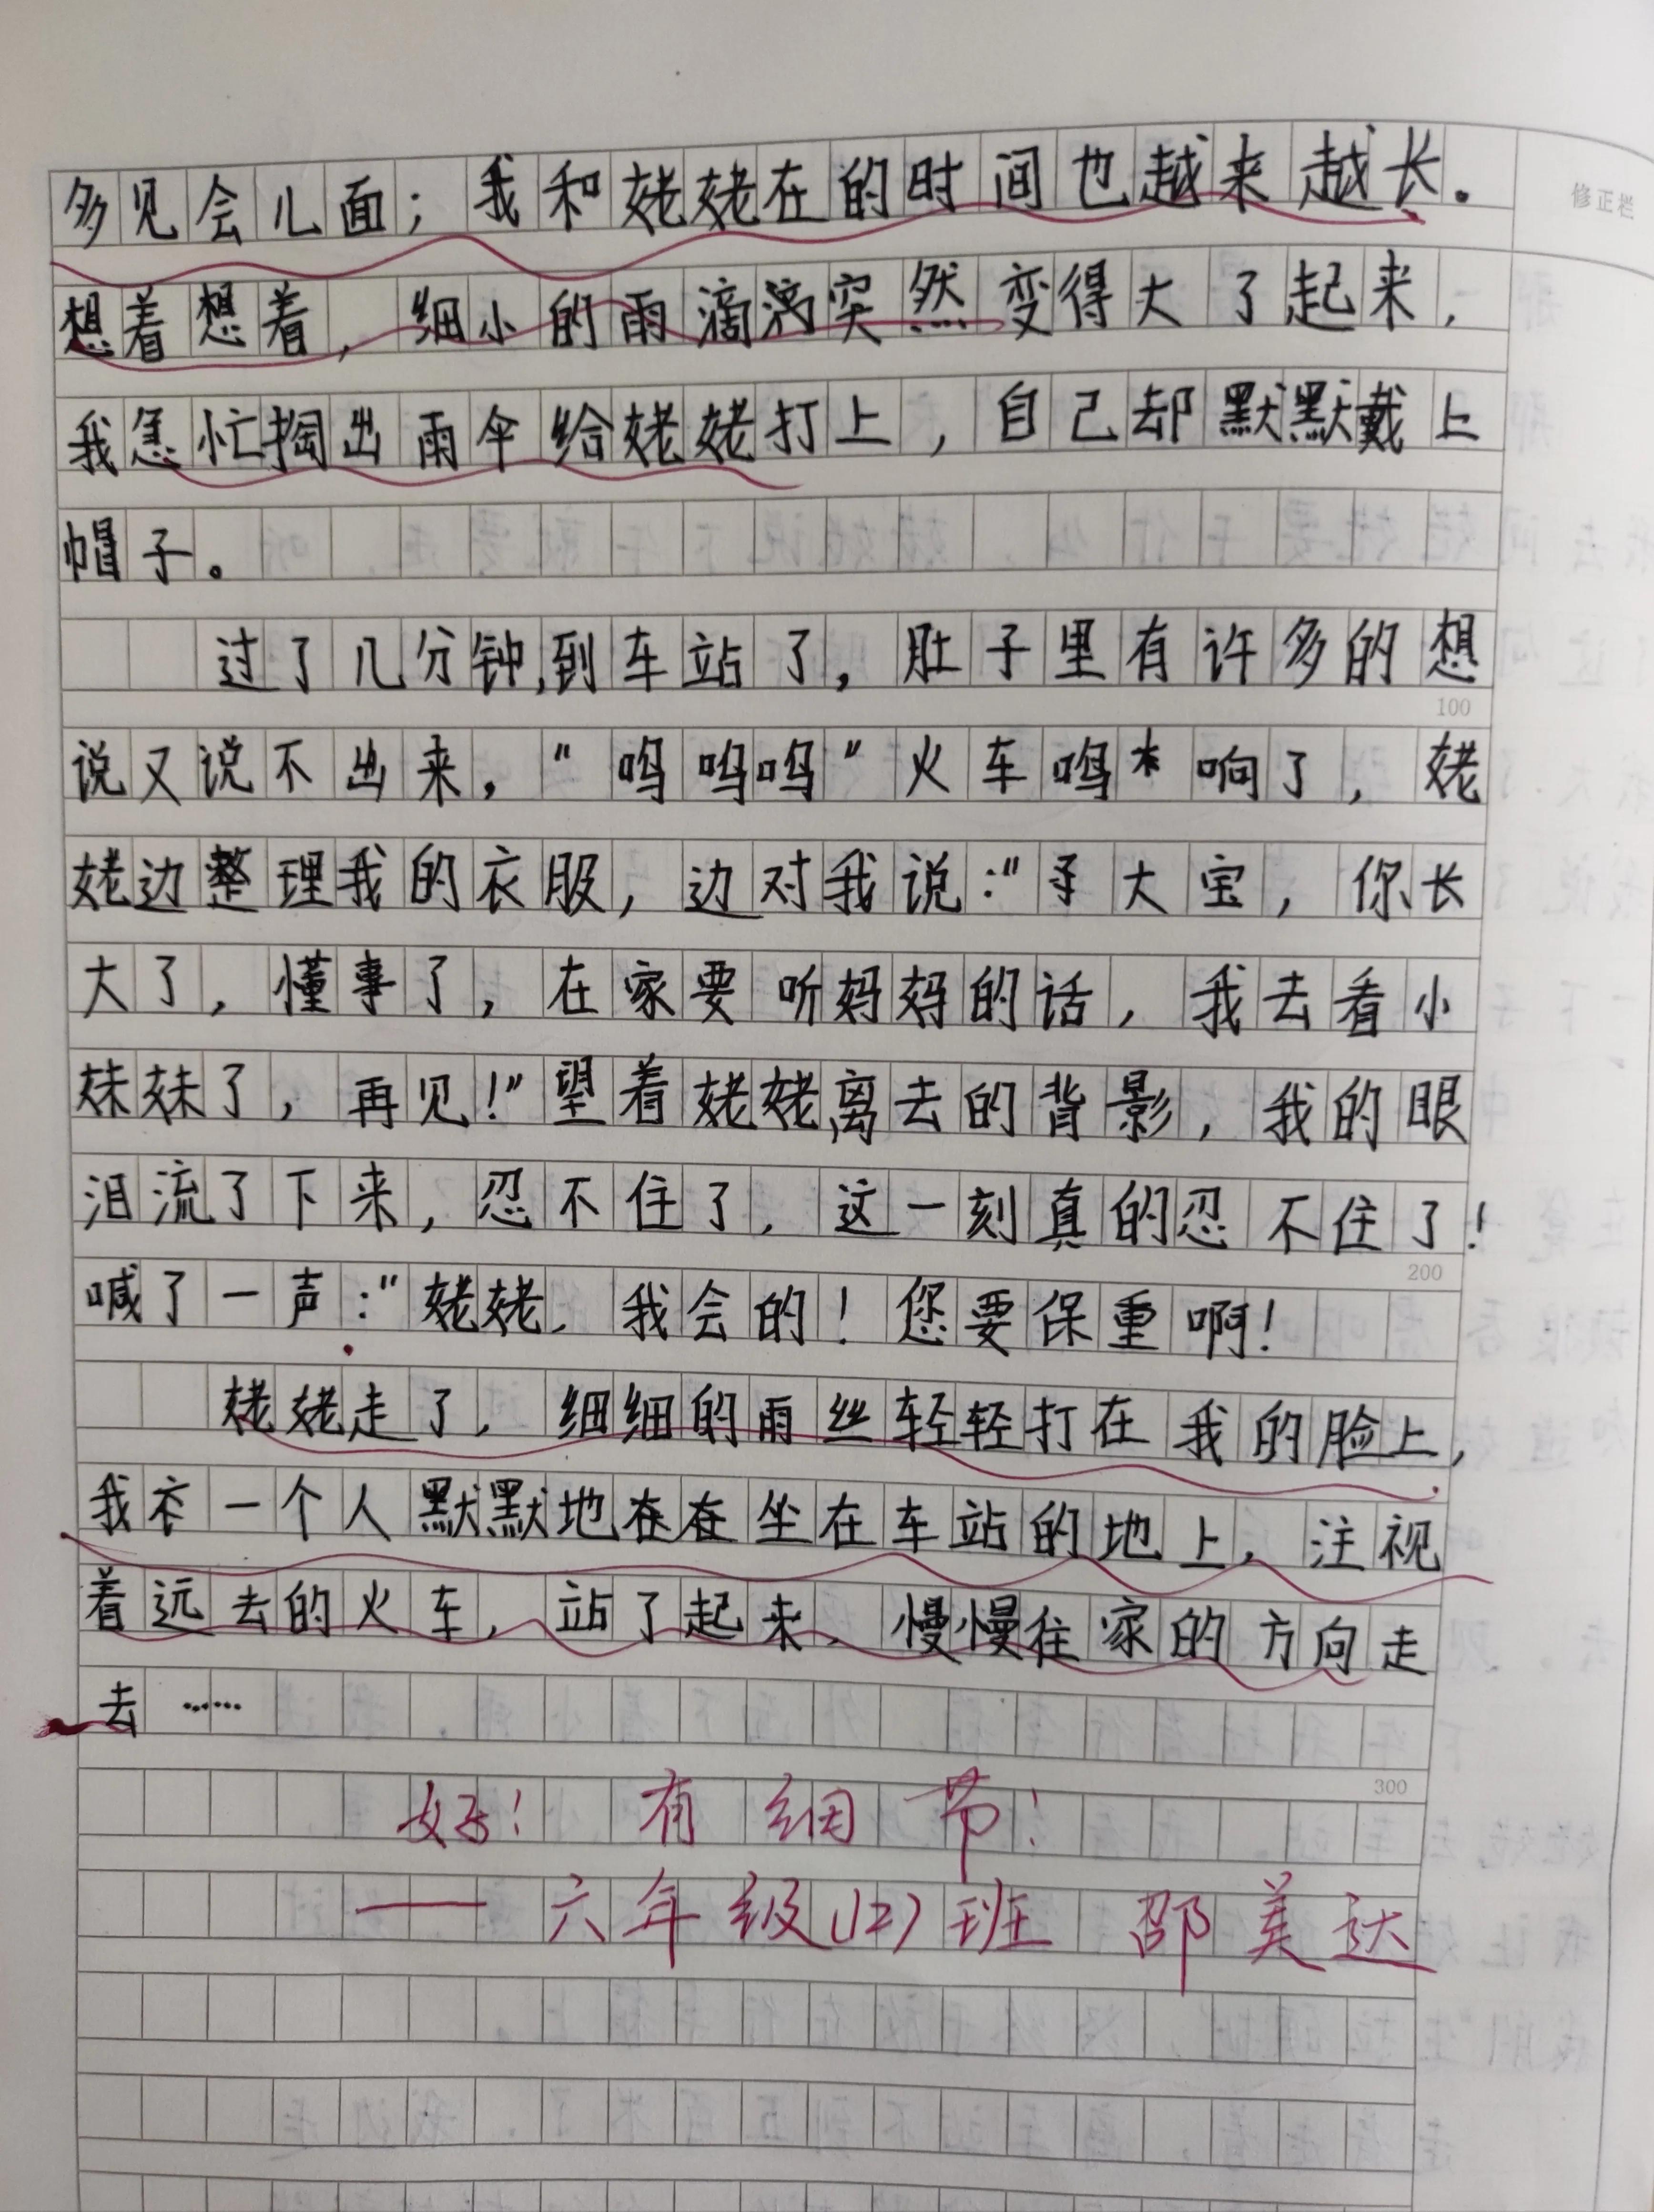 修正栏
多见会儿面；我和姥姥在的时间也越来越长。
想着想着，细小的雨滴滴突然变得大了起来，
我急忙掏出雨伞给姥姥打上，自己却默默戴上
帽子。
过了几分钟,到车站了，肚子里有许多的想
100
说又说不出来，“呜呜呜”火车鸣响了，姥
姥边整理我的衣服，边对我说：“大宝，你长
大了，懂事了，在家要听妈妈的话，我去看小
妹妹了，再见！”望着姥姥离去的背影，我的眼
泪流了下来，忍不住了，这一刻真的忍不住了！
200
喊了一声：“姥姥，我会的！您要保重啊！
姥姥走了，细细的雨丝轻轻打在我的脸上，
我一个人默默地在在坐在车站的地上，注视
着远去的火车，站了起来，慢慢往家的方向走
去……
300
好！有细节！
——六年级(12)班 邵美达